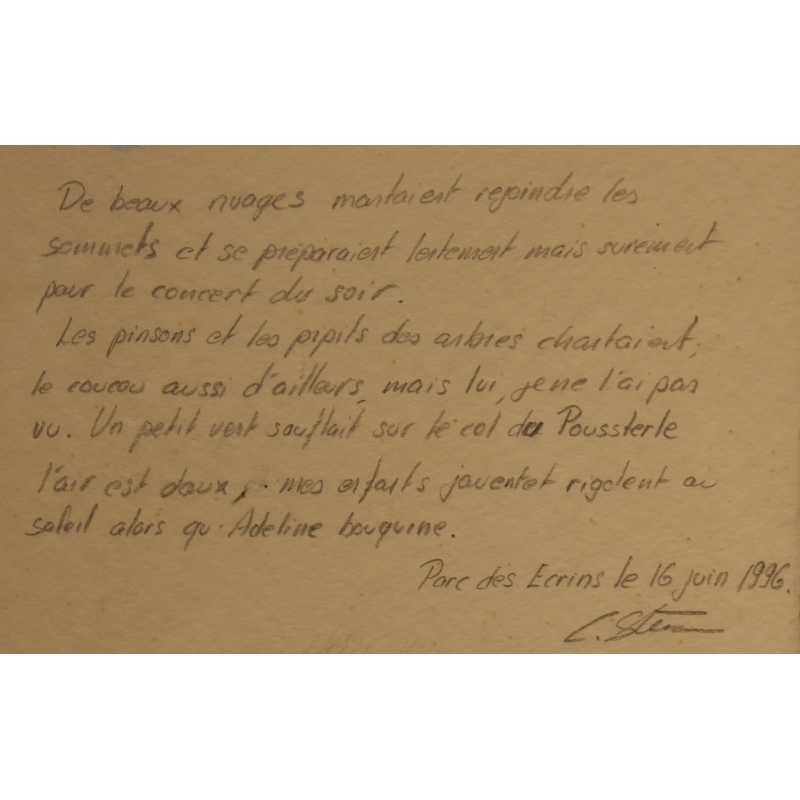 De beaux nuages montaient rejoindre les
sommets et se préparaient lentement mais surement
pour le concert du soir.
Les pinsons et les pipits des arbres chantaient,
le coucou aussi d'ailleurs, mais lui, je ne l'ai pas
vu. Un petit vent soufflait sur le col de Pousterle
l'air est doux, mes enfants jouent et rigolent au
soleil alors qu'Adeline bouquine.
Parc des Ecrins le 16 juin 1996.